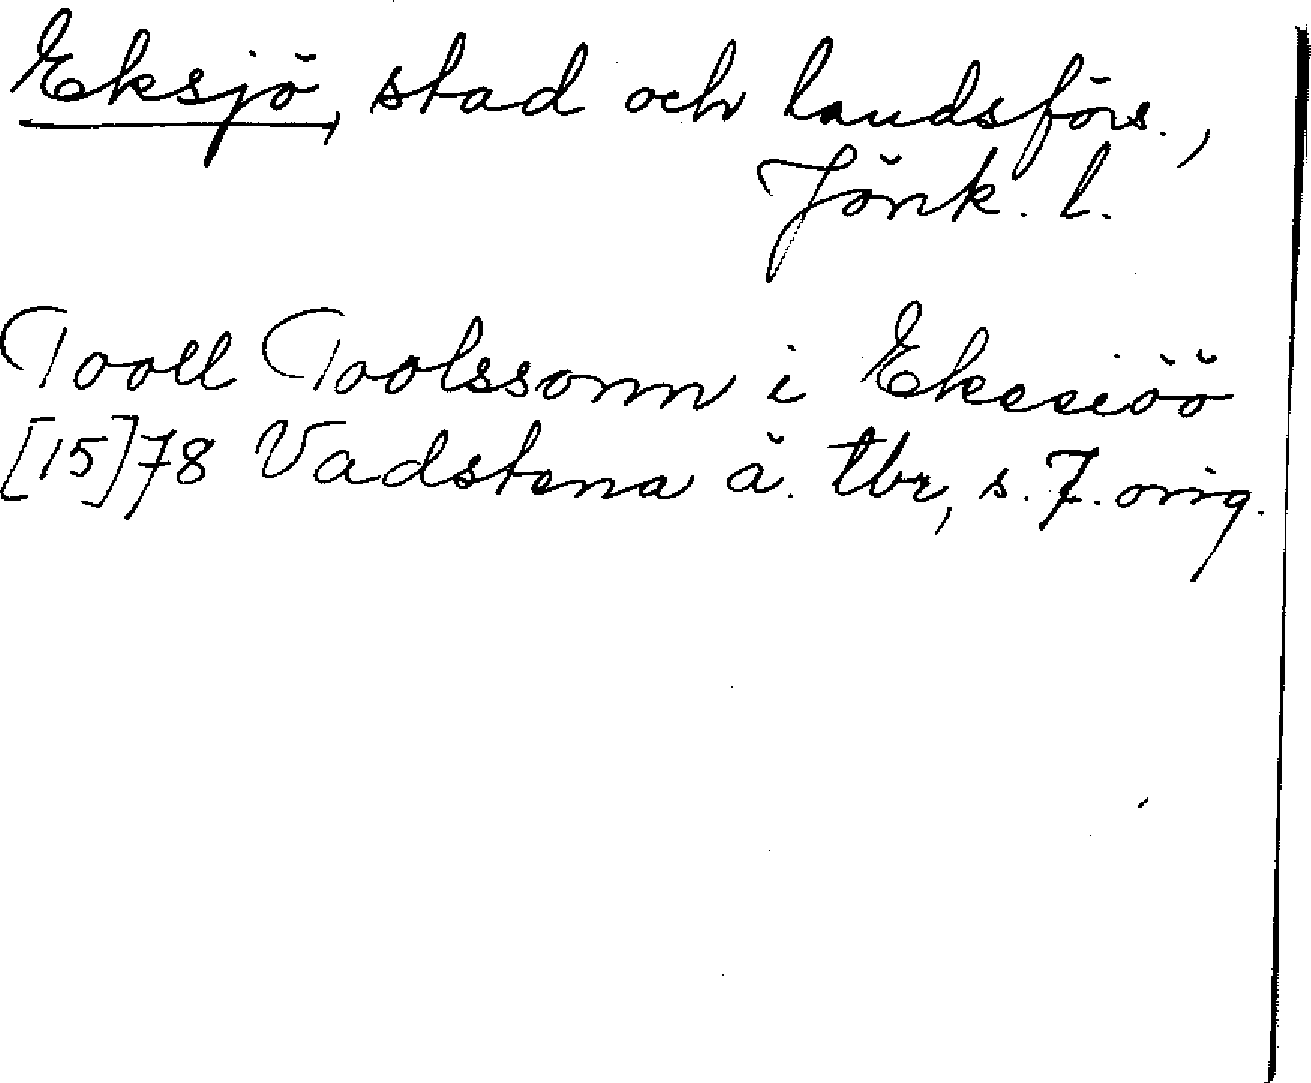 Eksjö, stad och landsförs.,
Jönk. l.
Tooll Toolssonn i Ekesiöö
[15]78 Vadstena ä. tbr, s. 7. orig.